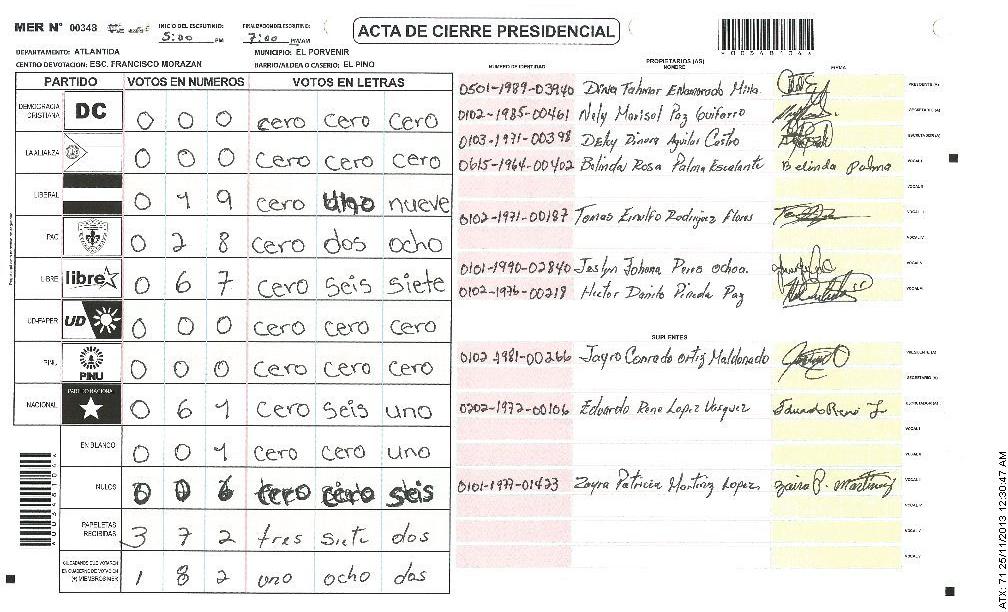 MER N° 00348
INICIO DEL ESCRUTINIO: 5:00 PM
FINALIZACION DEL ESCRUTINIO: 7:00 PM/AM
ACTA DE CIERRE PRESIDENCIAL
DEPARTAMENTO: ATLANTIDA
MUNICIPIO: EL PORVENIR
CENTRO DE VOTACION: ESC. FRANCISCO MORAZAN
BARRIO/ALDEA O CASERIO: EL PINO
PARTIDO VOTOS EN NUMEROS VOTOS EN LETRAS
DEMOCRACIA CRISTIANA DC 0 0 0 cero cero cero
LA ALIANZA 0 0 0 cero cero cero
LIBERAL 0 1 9 cero uno nueve
PAC 0 2 8 cero dos ocho
LIBRE libre 0 6 7 cero seis siete
UD-FAPER UD 0 0 0 cero cero cero
PINU PINU 0 0 0 cero cero cero
NACIONAL PARTIDO NACIONAL 0 6 1 cero seis uno
EN BLANCO 0 0 1 cero cero uno
NULOS 0 0 6 cero cero seis
PAPELETAS RECIBIDAS 3 7 2 tres siete dos
CIUDADANOS QUE VOTARON EN CUADERNO DE VOTACION (+) MIEMBROS MER 1 8 2 uno ocho dos
NUMERO DE IDENTIDAD
PROPIETARIOS (AS)
NOMBRE
FIRMA
0501-1989-03940 PRESIDENTE (A)
0102-1985-00461 Nely Marisol Paz Guifarro SECRETARIO (A)
0103-1971-00398 Aguilar Castro ESCRUTADOR (A)
0615-1964-00402 Belinda Rosa Palma Escalante Belinda Palma VOCAL I
VOCAL II
0102-1971-00187 Tomas Rodriguez Flores VOCAL III
VOCAL IV
0101-1990-02840 Johana Ochoa VOCAL V
0102-1976-00218 Hector Danilo Pineda Paz VOCAL VI
SUPLENTES
0102 1981-00266 Jayro Conrado Ortiz Maldonado PRESIDENTE (A)
SECRETARIO (A)
0202-1972-00106 Eduardo Rene Lopez Vasquez ESCRUTADOR (A)
VOCAL I
VOCAL II
0101-1977-01423 Zayra Patricia Martinez Lopez Zaira P. Martinez VOCAL III
VOCAL IV
VOCAL V
VOCAL VI
ATX: 71 25/11/2013 12:30:47 AM